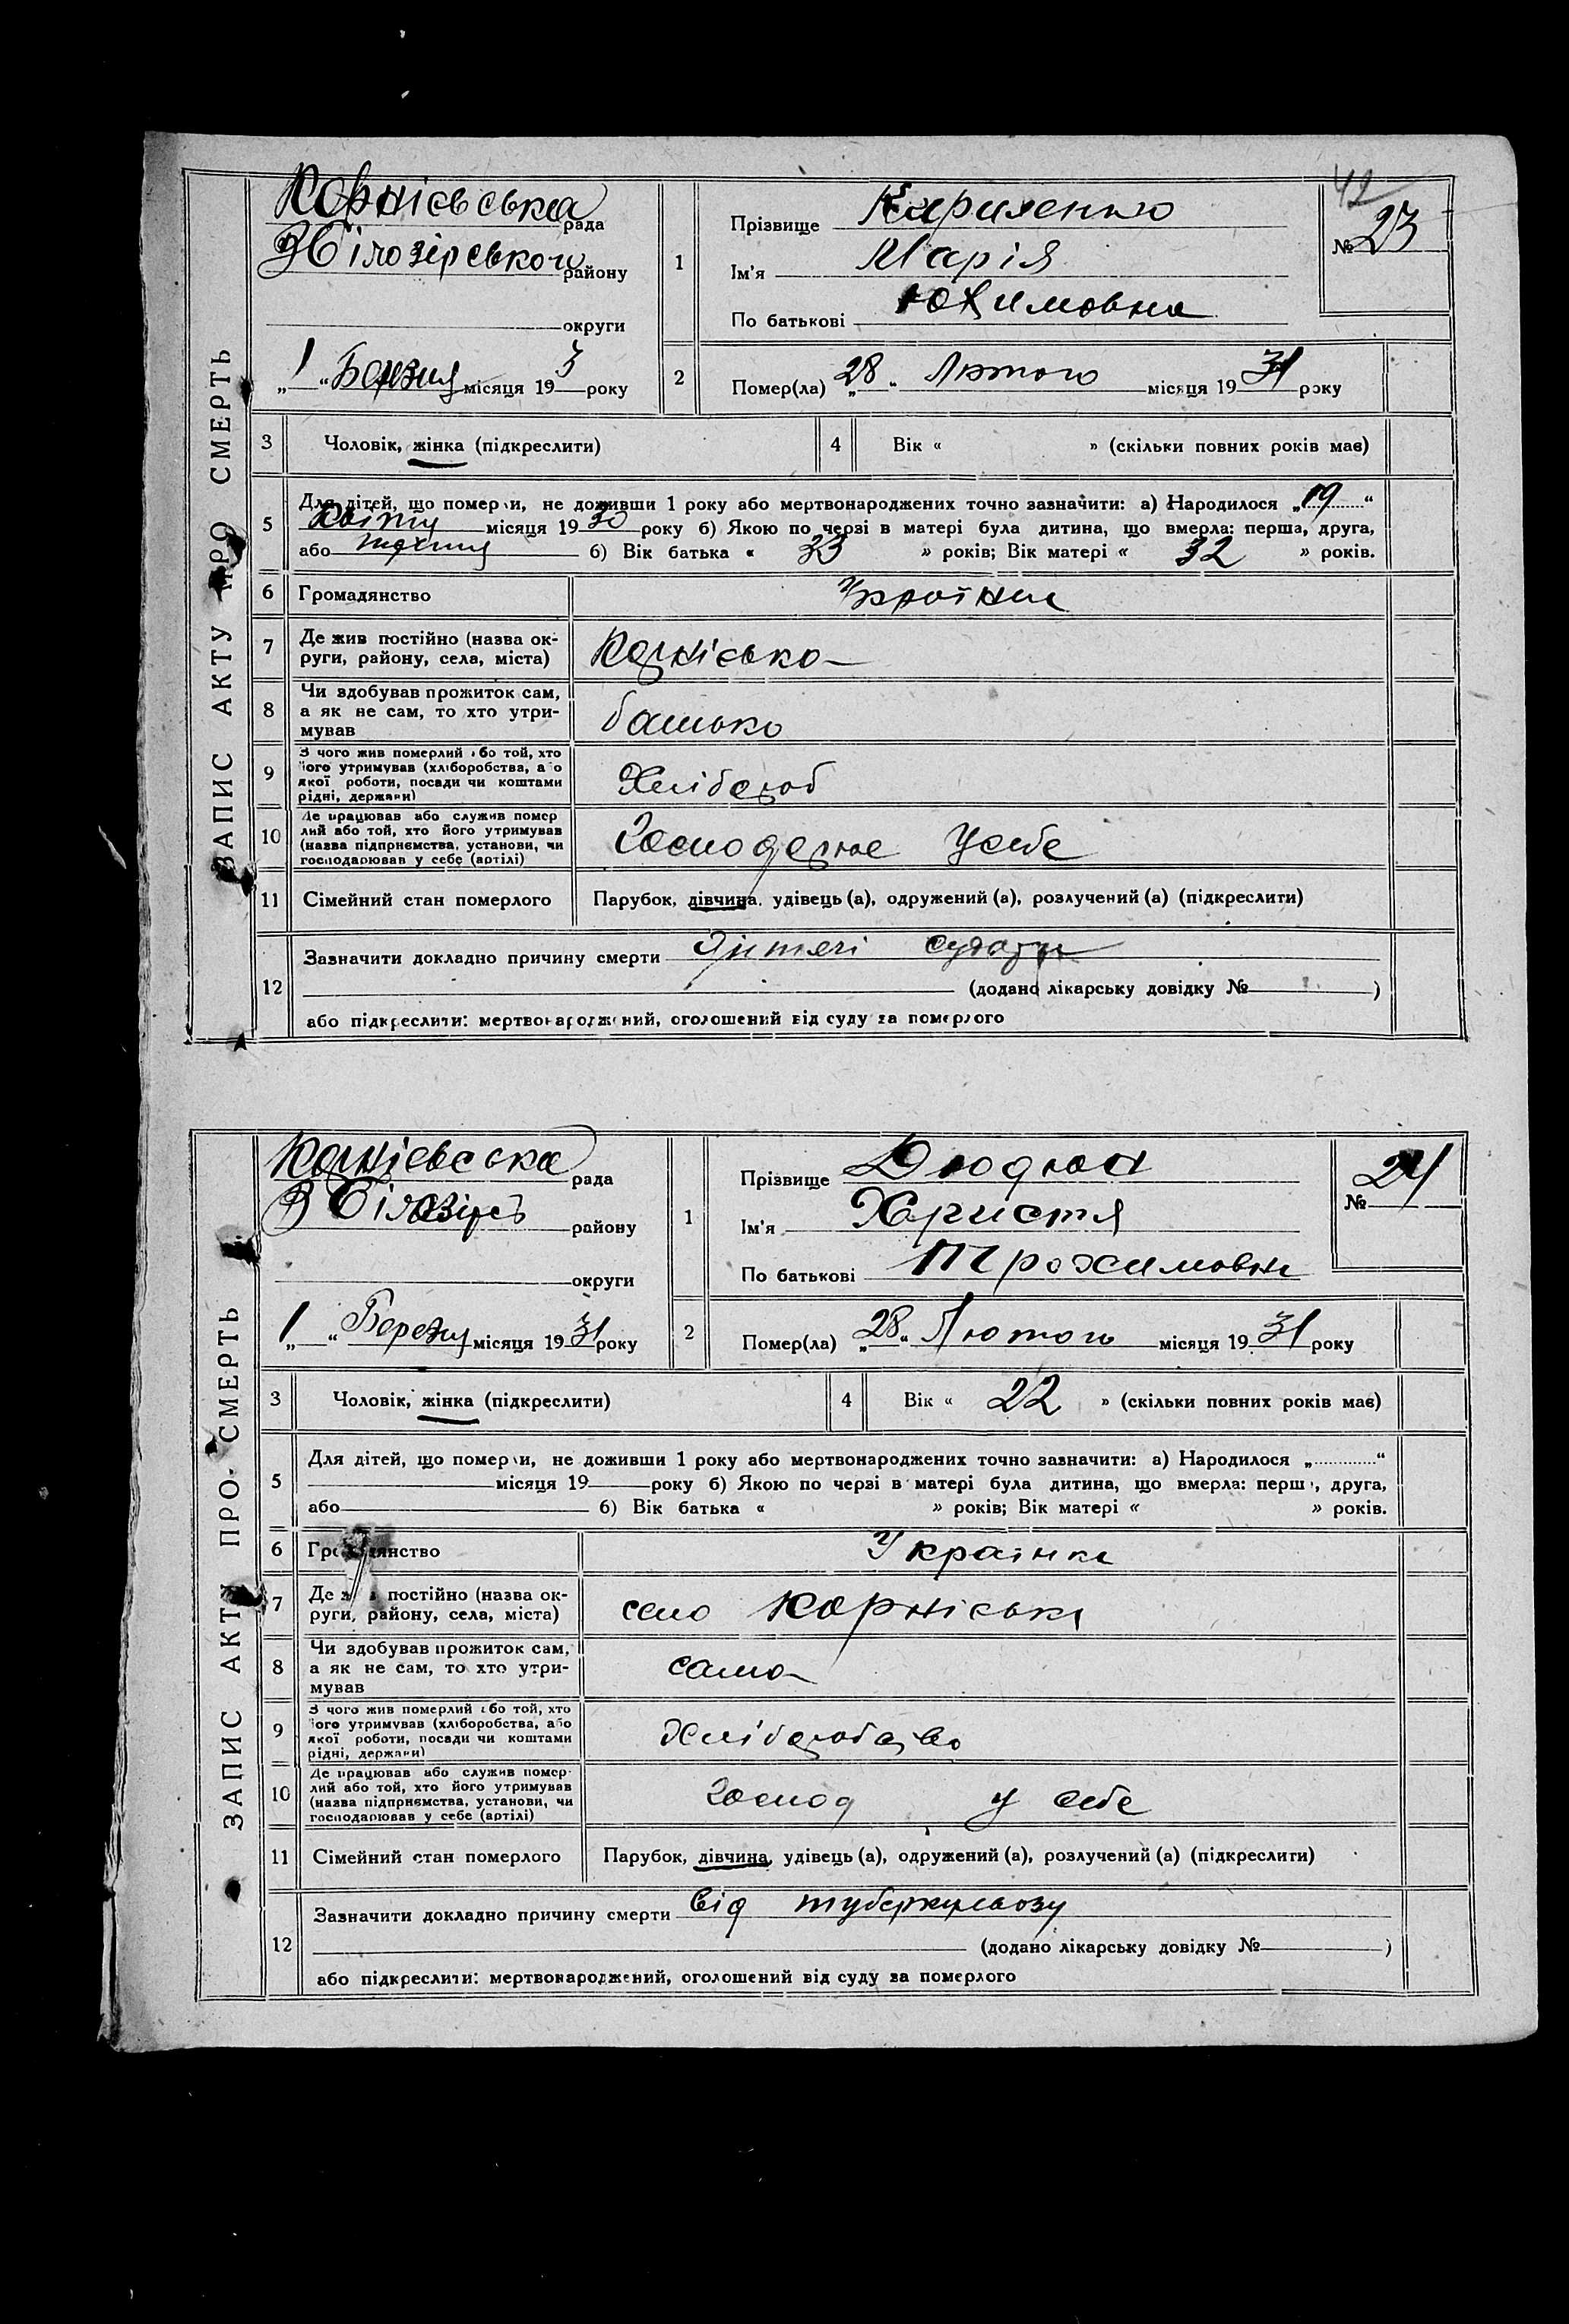 42
ЗАПИС АКТУ ПРО СМЕРТЬ
Корнієвська рада
Збілозірського району
округи
„1“ Березня місяця 193 року
1
Прізвище Кириленко
Ім'я Марія
По батькові Юхимовна
№ 23
2
Помер(ла) „28“ Лютого місяця 1931 року
3 Чоловік, жінка (підкреслити)
4 Вік « » (скільки повних років має)
5 Для дітей, що померли, не доживши 1 року або мертвонароджених точно зазначити: а) Народилося „19“
Квітня місяця 1930 року б) Якою по черзі в матері була дитина, що вмерла: перша, друга,
або б) Вік батька « 33 » років; Вік матері « 32 » років.
6 Громадянство Україн
7 Де жив постійно (назва ок-
руги, району, села, міста)
Корнієвка
8 Чи здобував прожиток сам,
а як не сам, то хто утри-
мував
батько
9 З чого жив померлий або той, хто
його утримував (хліборобства, або
якої роботи, посади чи коштами
рідні, держави)
Хлібороб
10 Де працював або служив помер
лий або той, хто його утримував
(назва підприємства, установи, чи
господарював у себе (артілі)
Господарює у себе
11 Сімейний стан померлого
Парубок, дівчина, удівець (а), одружений (а), розлучений (а) (підкреслити)
12 Зазначити докладно причину смерти Дитячі судоги
(додано лікарську довідку № )
або підкреслити: мертвонароджений, оголошений від суду за померлого
ЗАПИС АКТУ ПРО СМЕРТЬ
Корнієвська рада
Збілозірс району
округи
„1“ Березня місяця 1931 року
1
Прізвище Дюдюа
Ім'я Христя
По батькові Трохимовна
№ 24
2
Помер(ла) „28“ Лютого місяця 1931 року
3 Чоловік, жінка (підкреслити)
4 Вік « 22 » (скільки повних років має)
5 Для дітей, що померли, не доживши 1 року або мертвонароджених точно зазначити: а) Народилося „ “
місяця 19 року б) Якою по черзі в матері була дитина, що вмерла: перша, друга,
або б) Вік батька « » років; Вік матері « » років.
6 Громадянство Українка
7 Де жив постійно (назва ок-
руги, району, села, міста)
село Корнієвка
8 Чи здобував прожиток сам,
а як не сам, то хто утри-
мував
сама
9 З чого жив померлий або той, хто
його утримував (хліборобства, або
якої роботи, посади чи коштами
рідні, держави)
10 Де працював або служив помер-
лий або той, хто його утримував
(назва підприємства, установи, чи
господарював у себе (артілі)
Господ у себе
11 Сімейний стан померлого
Парубок, дівчина, удівець (а), одружений (а), розлучений (а) (підкреслити)
12 Зазначити докладно причину смерти від туберкульозу
(додано лікарську довідку № )
або підкреслити: мертвонароджений, оголошений від суду за померлого